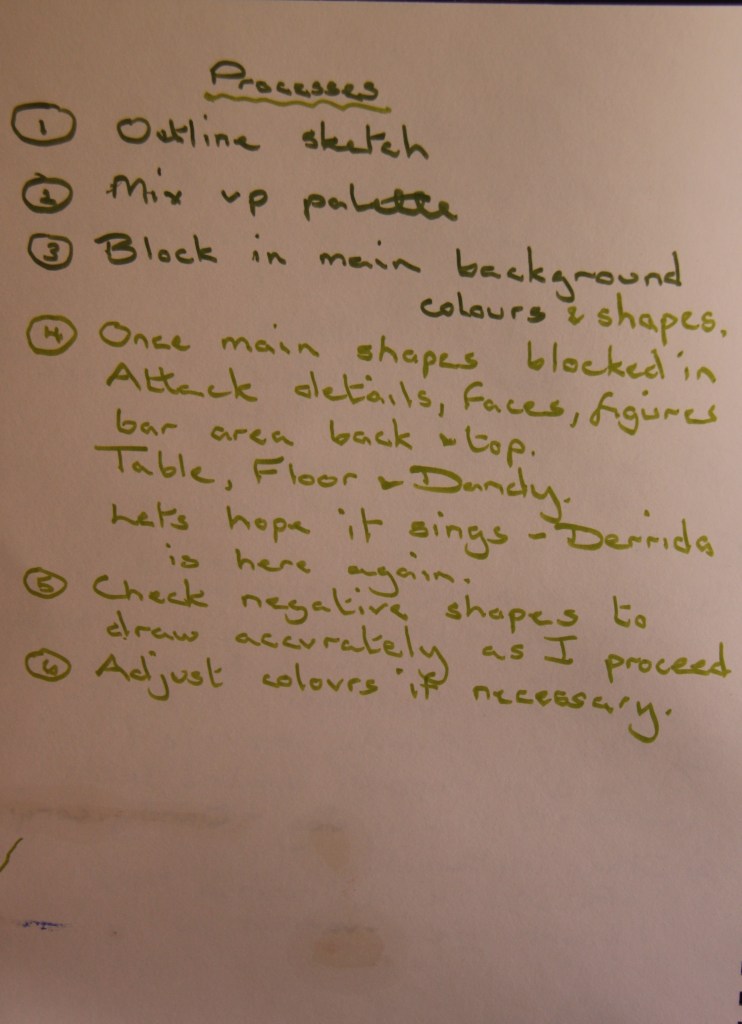 Processes
1 Outline sketch
2 Mix up palette
3 Block in main background
colours & shapes.
4 Once main shapes blocked in
Attack details, faces, figures
bar area back & top.
Table, Floor & Dandy.
Lets hope it sings - Derrida
is here again.
5 Check negative shapes to
draw accurately as I proceed
6 Adjust colours if necessary.